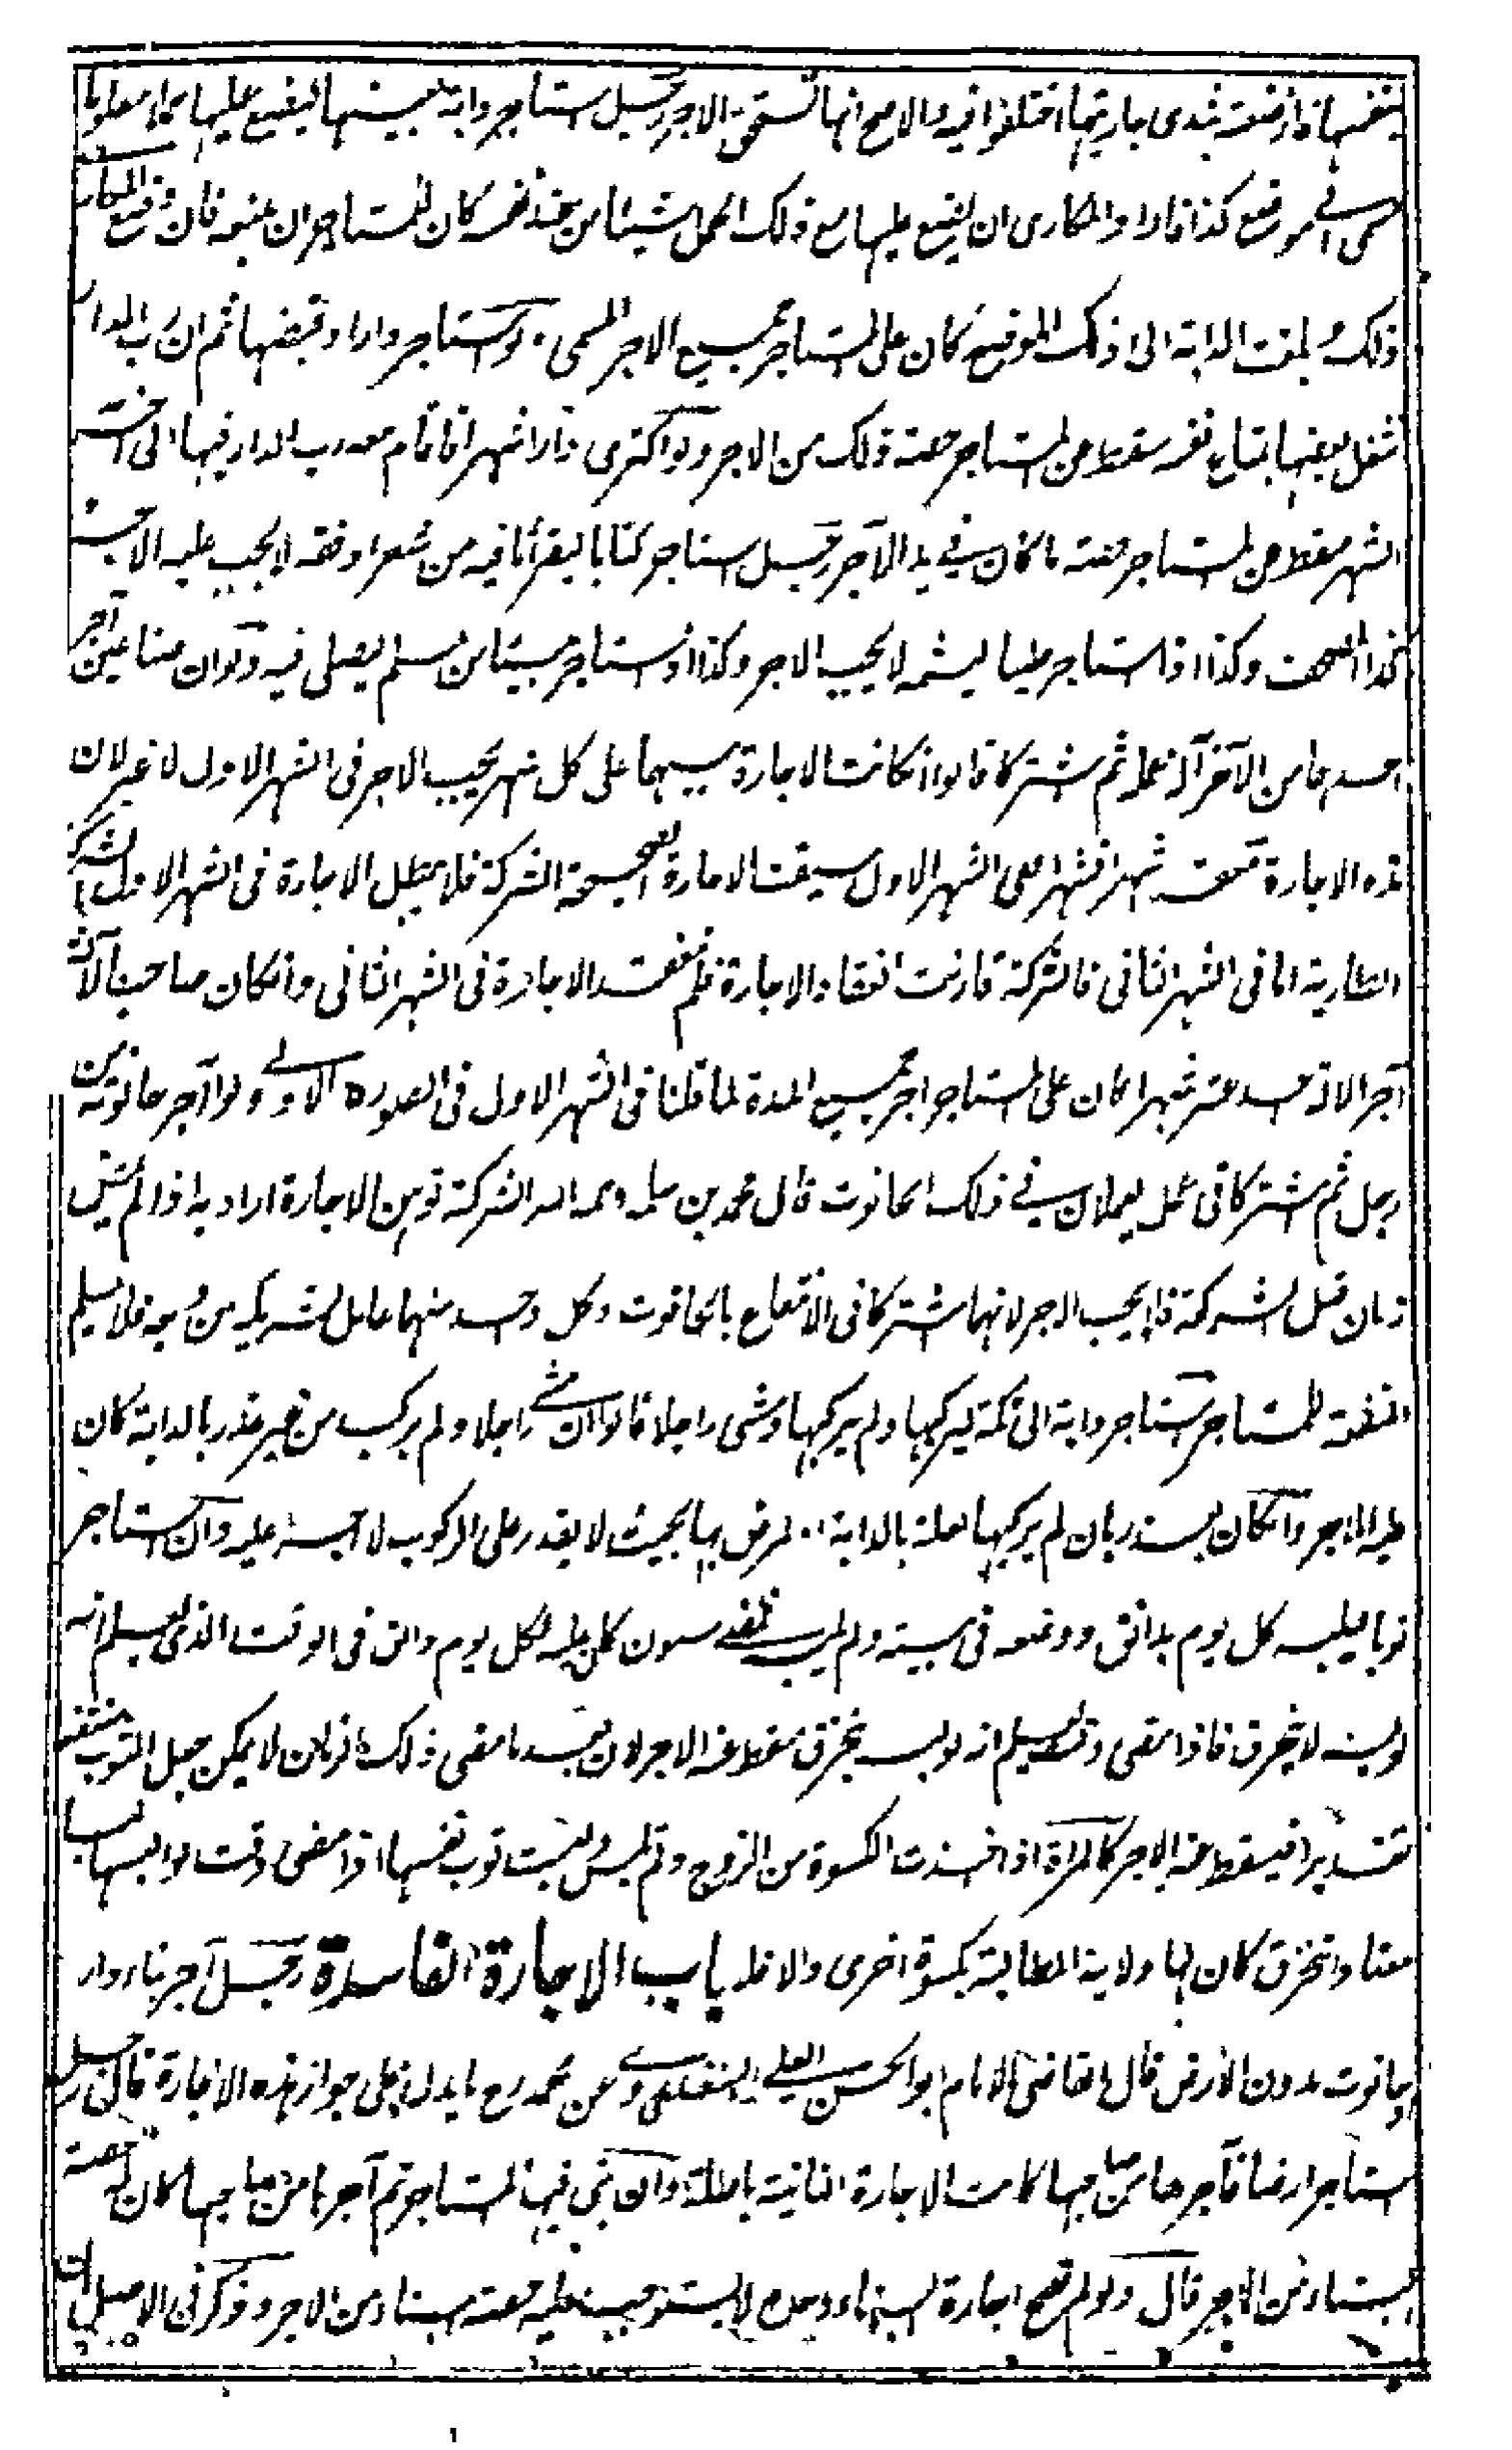 بنفسها فارضعته بثدى جاريتها اختلفوا فيه والاصح انها تستحق الاجر رجل استاجر دابة بعينها ليضع عليها حملا معلوما
الى موضع كذا فاراد المكارى ان يضع عليها مع ذلك الحمل شيئا من عند نفسه كان للمستاجر ان يمنعه فان وضع المكارى
ذلك وبلغت الدابة الى ذلك الموضع كان على المستاجر جميع الاجر المسمى ولو استاجر دارا وقبضها ثم ان رب الدار
شغل بعضها بمتاع نفسه سقط عن المستاجر حصة ذلك من الاجر ولو اكترى دارا شهرا فاقام معه رب الدار فيها الى اخر
الشهر سقط عن المستاجر حصة ما كان في يد الآجر رجل استاجر كتابا ليقرأ ما فيه من شعر او فقه لا يجب عليه الاجر
كذا المصحف وكذا اذا استاجر طيبا ليشمه لا يجب الاجر وكذا لو استاجر بيتا من مسلم يصلى فيه ولو ان صناعين آجر
احدهما من الآخر آلة عمله ثم اشتركا قالوا ان كانت الاجارة بينهما على كل شهر يجب الاجر فى الشهر الاول لا غير لان
هذه الاجارة تنعقد شهرا فشهرا ففى الشهر الاول سبقت الاجارة الصحيحة الشركة فلا تبطل الاجارة فى الشهر الاول بالشركة
الطارية اما فى الشهر الثانى فالشركة قارنت انعقاد الاجارة فلم تنعقد الاجارة فى الشهر الثانى وان كان صاحب الآلة
آجر الآلة عشر شهرا كان على المستاجر اجر جميع المدة لما قلنا فى الشهر الاول فى الصورة الاولى ولو آجر حانوته من
رجل ثم اشتركا فى عمل يعملان في ذلك الحانوت قال محمد بن سلمة رحمه الله الشركة توهن الاجارة اراد به اذا لم يمض
زمان قبل الشركة فلا يجب الاجر لانهما اشتركا فى الانتفاع بالحانوت وكل واحد منهما عامل لشريكه من وجه فلا يسلم
المنفعة للمستاجر استاجر دابة الى مكة ليركبها ولم يركبها ومشى راجلا قالوا ان مشى راجلا ولم يركب من غير عذر بالدابة كان
عليه الاجر وان كان بعذر بان لم يركبها لعلة بالدابة او لمرض بها بحيث لا يقدر على الركوب لا اجر عليه وان استاجر
ثوبا ليلبسه كل يوم بدانق ووضعه فى بيته ولم يلبس حتى مضى سنون كان عليه لكل يوم دانق فى الوقت الذى يعلم انه
لو لبسه لا يتخرق فاذا مضى وقت يعلم انه لو لبسه يتخرق سقط عنه الاجر لان بعد ما مضى ذلك الزمان لا يمكن جعل الثوب منتفعا
تقديرا فيسقط عنه الاجر كالمراة اذا اخذت الكسوة من الزوج ولم تلبس ولبست ثوب نفسها اذا مضى وقت لو لبسها لبسا
معتادا تخرق كان لها ولاية المطالبة بكسوة اخرى والا فلا باب الاجارة الفاسدة رجل آجر بناء دار
او حانوت بدون الارض قال القاضى الامام ابو الحسن على السغدى روى عن محمد رح ما يدل على جواز هذه الاجارة فان رجل
استاجر ارضا فآجرها من صاحبها كانت الاجارة الثانية باطلة وان بنى فيها المستاجر ثم آجرها من صاحبها كان له حصة
البناء من الاجر قال ولو لم تصح اجارة البناء وحده لا يستوجب عليه حصة البناء من الاجر وذكر فى الاصل